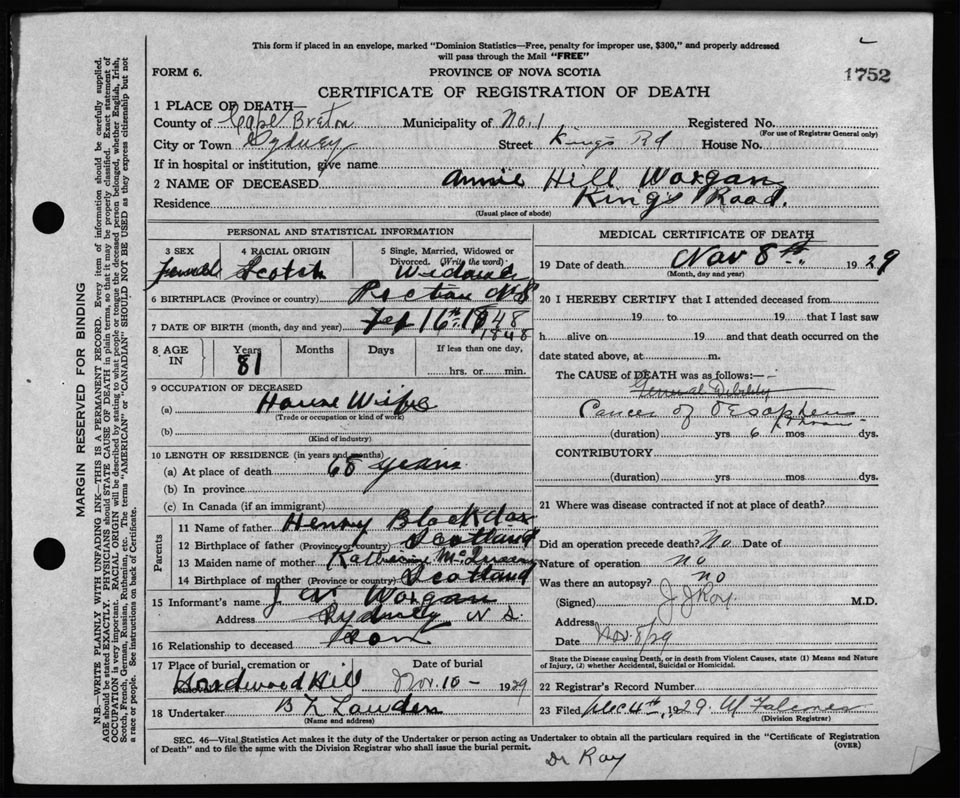 This form if placed in an envelope, marked "Dominion Statistics—Free, penalty for improper use, $300," and properly addressed
will pass through the Mail "FREE"
FORM 6.
PROVINCE OF NOVA SCOTIA
1752
CERTIFICATE OF REGISTRATION OF DEATH
1 PLACE OF DEATH—
County of Cape Breton Municipality of No. 1 Registered No.
(For use of Registrar General only)
City or Town Sydney Street Kings Rd House No.
If in hospital or institution, give name
2 NAME OF DECEASED Annie Hill Worgan
Residence Kings Road.
(Usual place of abode)
PERSONAL AND STATISTICAL INFORMATION
3 SEX 4 RACIAL ORIGIN 5 Single, Married, Widowed or Divorced. (Write the word)
female Scotch Widow
6 BIRTHPLACE (Province or country) Pictou N S
7 DATE OF BIRTH (month, day and year) Feb 16th 1848
1848
8 AGE IN Years Months Days If less than one day,
81 hrs. or min.
9 OCCUPATION OF DECEASED
(a) House Wife
(Trade or occupation or kind of work)
(b)
(Kind of industry)
10 LENGTH OF RESIDENCE (in years and months)
(a) At place of death 65 years
(b) In province
(c) In Canada (if an immigrant)
Parents
11 Name of father Henry
12 Birthplace of father (Province or country) Scotland
13 Maiden name of mother Katherine
14 Birthplace of mother (Province or country) Scotland
15 Informant's name J Worgan
Address Sydney N S.
16 Relationship to deceased Son
17 Place of burial, cremation or removal Date of burial
Hardwood Hill Nov. 10 - 1929
18 Undertaker
(Name and address)
MEDICAL CERTIFICATE OF DEATH
19 Date of death Nov 8th 1929
(Month, day and year)
20 I HEREBY CERTIFY that I attended deceased from
19 to 19 that I last saw
h alive on 19 and that death occurred on the
date stated above, at m.
The CAUSE of DEATH was as follows:—
General Debility
Cancer of
(duration) yrs 6 mos dys.
CONTRIBUTORY
(duration) yrs mos dys.
21 Where was disease contracted if not at place of death?
Did an operation precede death? No Date of
Nature of operation no
Was there an autopsy? no
(Signed) J J Roy M.D.
Address
Date Nov. 8/29
State the Disease causing Death, or in death from Violent Causes, state (1) Means and Nature
of Injury, (2) whether Accidental, Suicidal or Homicidal.
22 Registrar's Record Number
23 Filed Dec 4th, 1929
(Division Registrar)
SEC. 46—Vital Statistics Act makes it the duty of the Undertaker or person acting as Undertaker to obtain all the particulars required in the "Certificate of Registration
of Death" and to file the same with the Division Registrar who shall issue the burial permit.
(OVER)
Dr Roy
MARGIN RESERVED FOR BINDING
N.B.—WRITE PLAINLY WITH UNFADING INK—THIS IS A PERMANENT RECORD. Every item of information should be carefully supplied.
AGE should be stated EXACTLY. PHYSICIANS should STATE CAUSE OF DEATH in plain terms, so that it may be properly classified. Exact statement of
OCCUPATION is very important. RACIAL ORIGIN will be described by stating to what people or tongue the deceased person belonged, whether English, Irish,
Scotch, French, German, Russian, Ruthenian, etc. The terms "AMERICAN" or "CANADIAN" SHOULD NOT BE USED as they express citizenship but not
a race or people. See instructions on back of Certificate.